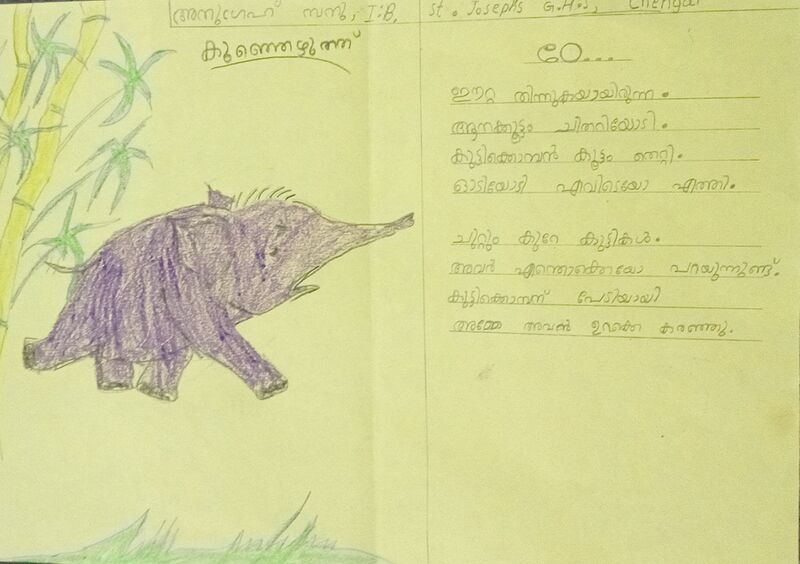 അനുഗ്രഹ് സനു, I:B, St. Josephs G.H.S,
കുഞ്ഞെഴുത്ത്
ഠേ...
ഈറ്റ തിന്നുകയായിരുന്ന.
ആനക്കൂട്ടം ചിതറിയോടി.
കുട്ടിക്കൊമ്പൻ കൂട്ടം തെറ്റി.
ഓടിയോടി എവിടെയോ എത്തി.
ചുറ്റും കുറേ കുട്ടികൾ.
അവർ എന്തൊക്കെയോ പറയുന്നുണ്ട്.
കുട്ടിക്കൊമ്പന് പേടിയായി
അമ്മേ അവൻ ഉറക്കെ കരഞ്ഞു.